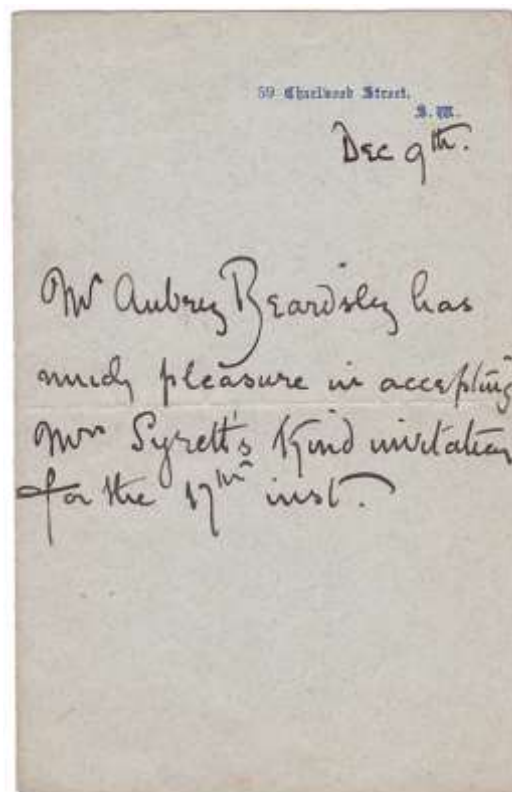 59 Charlwood Street.
S.W.
Dec 9th.
Mr Aubrey Beardsley has
much pleasure in accepting
Mrs Syrett's kind invitation
for the 17th inst.